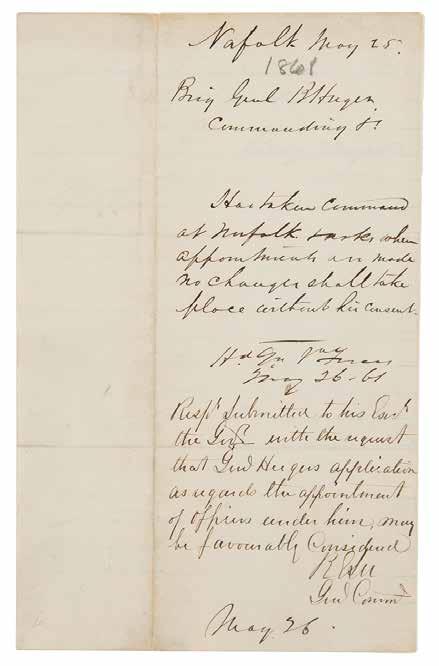 Nafolk May 25.
1861
Brig Genl B Huger
Commanding &c
Has taken command
at Norfolk asks when
appointments are made
no changes shall take
place without his consent.
Hd Qrs Va Forces
May 26-61
Respy submitted to his Excy
the Gov with the request
that Genl Hugers application
as regards the appointment
of officers under him, may
be favourably Considered
R E Lee
Genl Comm
May 26.